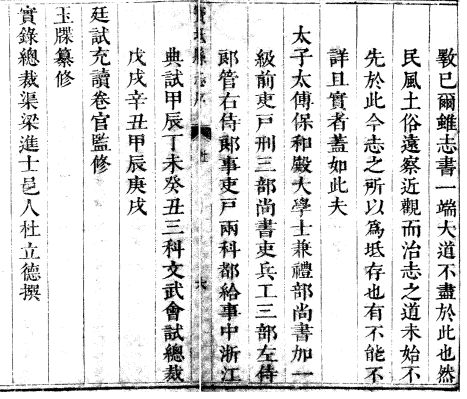 斁已爾雖志書一端大道不盡於此也然
民風土俗遠察近觀而治志之道未始不
先於此今志之所以為坻存也有不能不
詳且實者蓋如此夫
太子太傅保和殿大學士兼禮部尚書加一
級前吏戶刑三部尚書吏兵工三部左侍
郞管右侍郞事吏戶兩科都給事中浙江
典試甲辰丁未癸丑三科文武會試總裁
戊戌辛丑甲辰庚戌
廷試充讀卷官監修
玉牒纂修
實錄總裁渠梁進士邑人杜立德撰